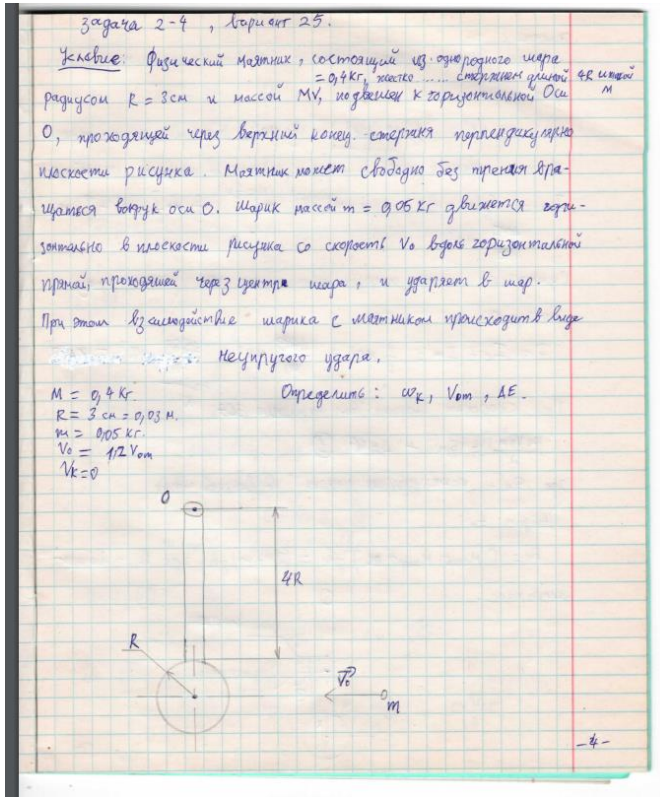 Задача 2-4, вариант 25.
Условие: Физический маятник, состоящий из однородного шара
= 0,4 кг, жестко ...... стержнем длиной 4R и массой M
радиусом R = 3 см и массой MV, подвешен к горизонтальной Оси
О, проходящей через верхний конец стержня перпендикулярно
плоскости рисунка. Маятник может свободно без трения вра-
щаться вокруг оси О. Шарик массой m = 0,05 кг движется гори-
зонтально в плоскости рисунка со скорость V₀ вдоль горизонтальной
прямой, проходящей через центр шара, и ударяет в шар.
При этом взаимодействие шарика с маятником происходит в виде
неупругого удара.
M = 0,4 кг
Определить: ωк, V₀m, ΔE.
R = 3 см = 0,03 м.
m = 0,05 кг.
V₀ = 1,2 V₀m
Vк = 0
О
4R
R
V₀
m
-4-